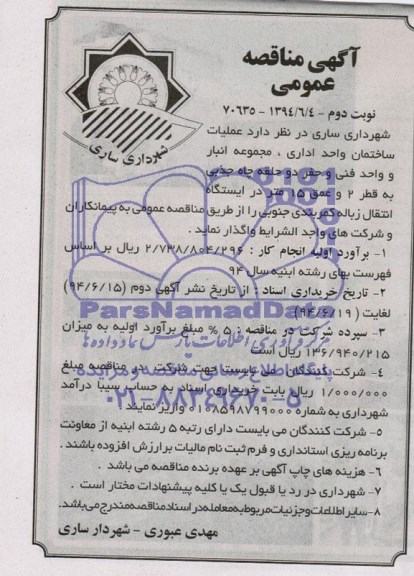 آگهی مناقصه
عمومی
نوبت دوم - ۱۳۹۴/۶/۴ - ۷۰۶۳۵
شهرداری ساری
شهرداری ساری در نظر دارد عملیات
ساختمان واحد اداری ، مجموعه انبار
و واحد فنی و حفر دو حلقه چاه جذبی
به قطر ۲ و عمق ۱۵ متر در ایستگاه
انتقال زباله کمربندی جنوبی را از طریق مناقصه عمومی به پیمانکاران
و شرکت های واجد الشرایط واگذار نماید .
۱- برآورد اولیه انجام کار : ۲/۷۳۸/۸۰۴/۲۹۶ ریال بر اساس
فهرست بهای رشته ابنیه سال ۹۴
۲- تاریخ خریداری اسناد : از تاریخ نشر آگهی دوم (۹۴/۶/۱۵)
لغایت (۹۴/۶/۱۹)
ParsNamadData
۳- سپرده شرکت در مناقصه : ۵ % مبلغ برآورد اولیه به میزان
۱۳۶/۹۴۰/۲۱۵ ریال است
۴- شرکت کنندگان می بایست جهت شرکت در مناقصه مبلغ
۱/۰۰۰/۰۰۰ ریال بابت خریداری اسناد به حساب سیبا درآمد
شهرداری به شماره ۰۱۰۸۵۹۸۷۹۹۰۰۰ واریز نمایند
۰۲۱-۸۸۳۴۹۶۷۰-۵
۵- شرکت کنندگان می بایست دارای رتبه ۵ رشته ابنیه از معاونت
برنامه ریزی استانداری و فرم ثبت نام مالیات بر ارزش افزوده باشند .
۶- هزینه های چاپ آگهی بر عهده برنده مناقصه می باشد .
۷- شهرداری در رد یا قبول یک یا کلیه پیشنهادات مختار است .
۸- سایر اطلاعات و جزئیات مربوط به معامله در اسناد مناقصه مندرج می باشد.
مهدی عبوری - شهردار ساری